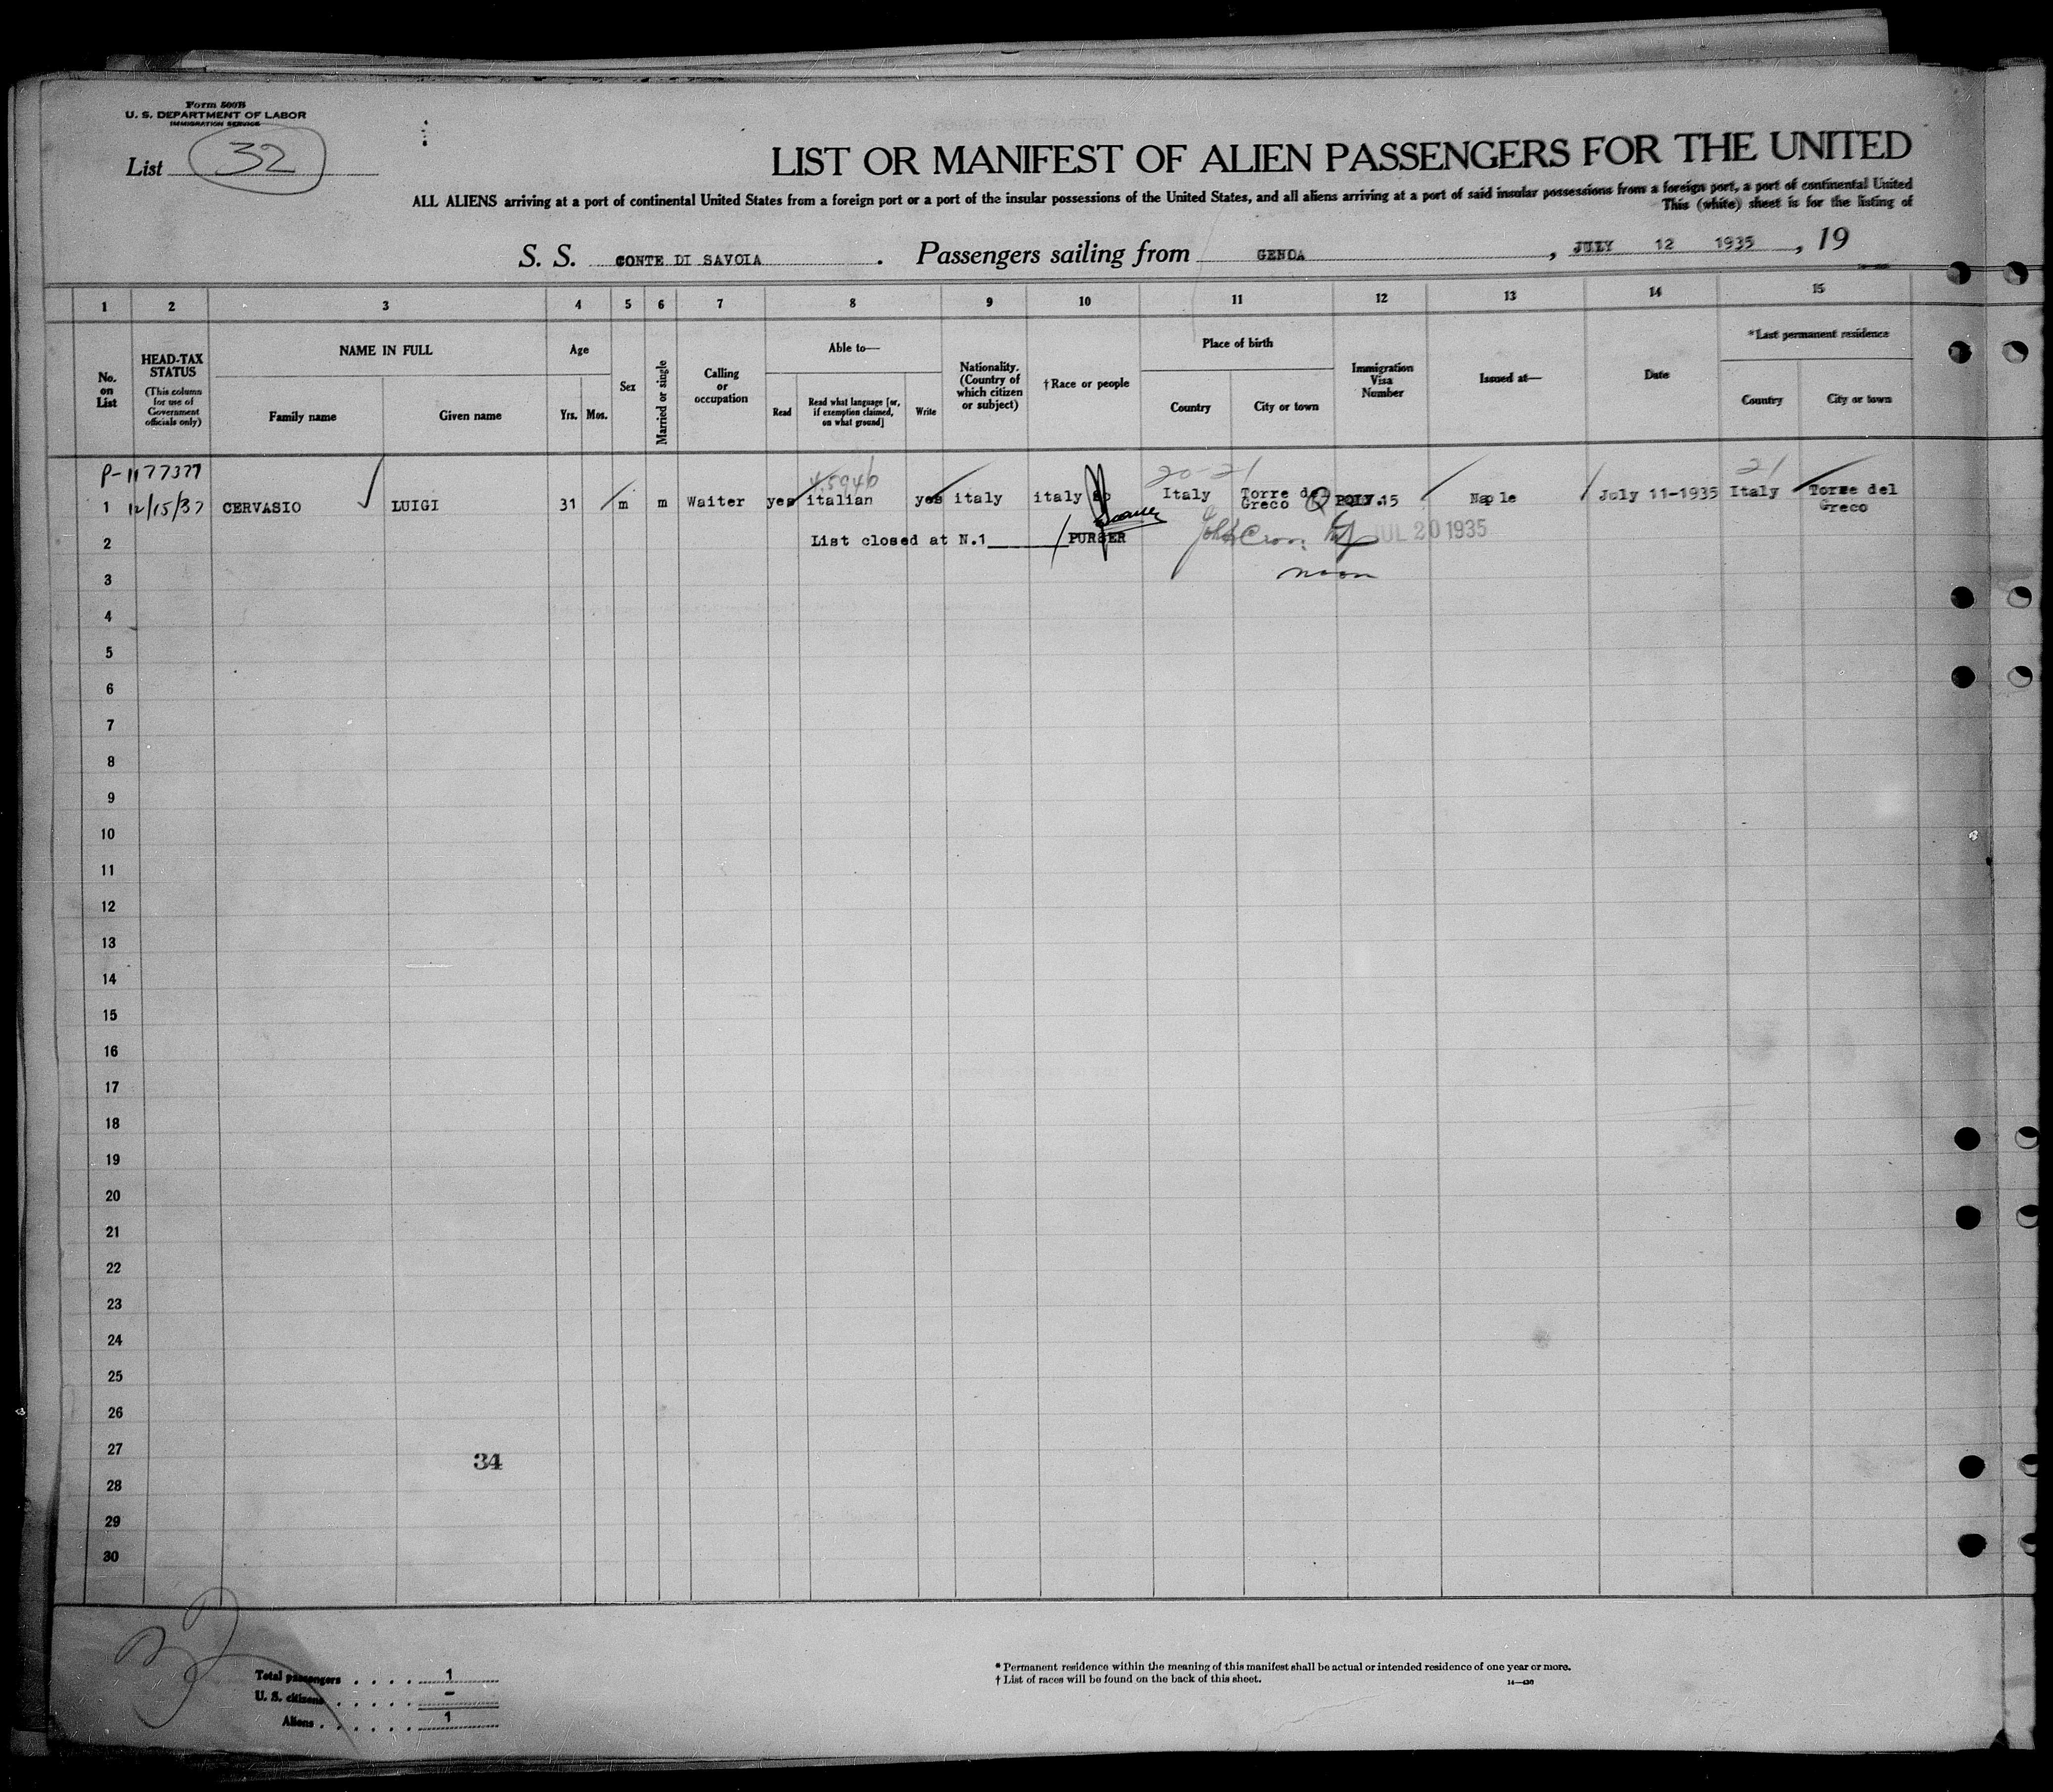 Form 500B
U. S. DEPARTMENT OF LABOR
IMMIGRATION SERVICE
List 32
LIST OR MANIFEST OF ALIEN PASSENGERS FOR THE UNITED
ALL ALIENS arriving at a port of continental United States from a foreign port or a port of the insular possessions of the United States, and all aliens arriving at a port of said insular possessions from a foreign port, a port of continental United
This (white) sheet is for the listing of
S. S. CONTE DI SAVOIA . Passengers sailing from GENOA , JULY 12 1935 , 19
1 2 3 4 5 6 7 8 9 10 11 12 13 14 15
No. on List
HEAD-TAX STATUS
(This column for use of Government officials only)
NAME IN FULL
Family name
Given name
Age
Yrs. Mos.
Sex
Married or single
Calling or occupation
Able to—
Read
Read what language [or, if exemption claimed, on what ground]
Write
Nationality. (Country of which citizen or subject)
†Race or people
Place of birth
Country
City or town
Immigration Visa Number
Issued at—
Date
*Last permanent residence
Country
City or town
P-1177377
20-21
21
1 12/15/37 CERVASIO LUIGI 31 m m Waiter yes italian yes italy italy Italy Torre del Greco Naple July 11-1935 Italy Torre del Greco
2 List closed at N.1 PURSER JUL 20 1935
noon
3
4
5
6
7
8
9
10
11
12
13
14
15
16
17
18
19
20
21
22
23
24
25
26
27
34
28
29
30
Total passengers . . . . 1
U. S. citizens . . . . . -
Aliens . . . . . . 1
* Permanent residence within the meaning of this manifest shall be actual or intended residence of one year or more.
† List of races will be found on the back of this sheet.
14—430